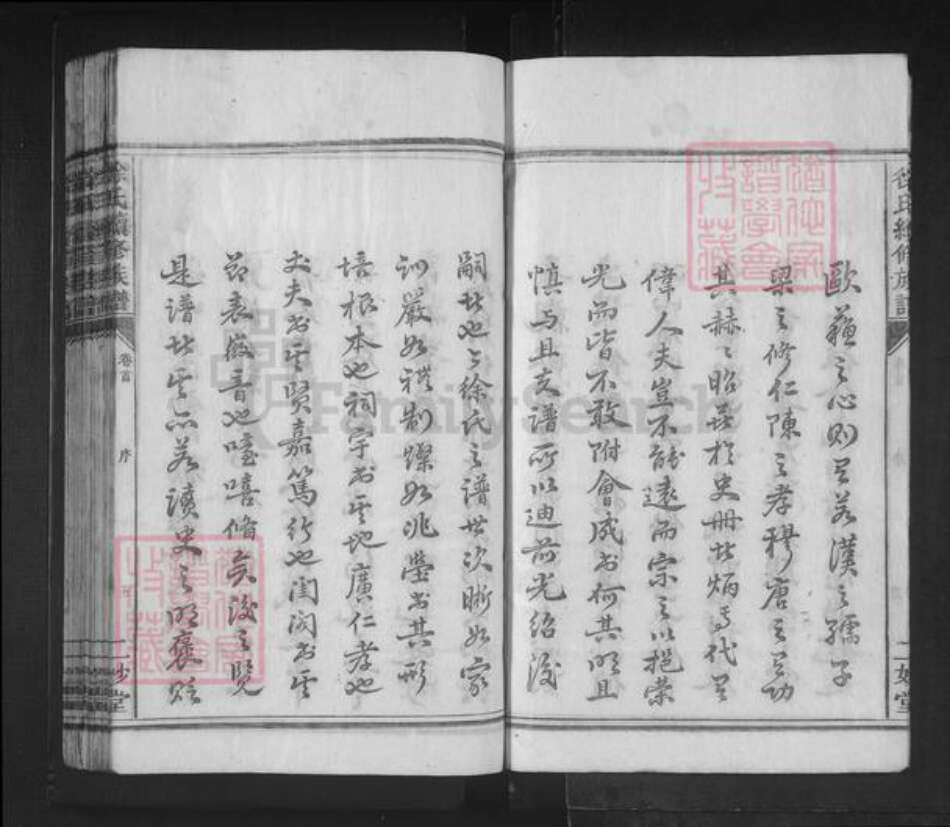 歐蘇之心則其若漢之孺子
梁之修仁陳之孝穆唐之其功
其赫々昭於史冊者炳予代其
偉人夫豈不能遠而宗之以挹榮
光而皆不敢附會成書何其明且
慎与且夫譜所以迪前光紹後
嗣者也今徐氏之譜世次晰如家
訓嚴如禮制燦如兆塋書其形
培根本也祠宇書其地廣仁孝也
丈夫書其賢嘉篤行也閨閫書其
節表徽音也噫嘻脩矣後之覽
是譜者其亦若讀史之明褒貶
徐氏續修族譜
卷首
序
一妙堂
徐氏續修族譜
一妙堂
猶他家譜學會收藏
猶他家譜學會收藏
FamilySearch